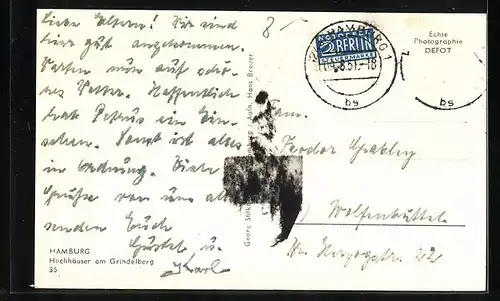 Liebe Eltern! Wir sind
hier gut angekommen.
Warten nun auf schö-
nes Wetter. Hoffentlich
hat Petrus ein Ein-
sehen. Sonst ist alles
in Ordnung. Viele
Grüße von uns all
senden Euch
Gustel u.
Karl
HAMBURG
Hochhäuser am Grindelberg
35
Georg Stilke
Aufn. Hans Breuer
NOTOPFER
2 BERLIN
STEUERMARKE
HAMBURG 1
bs
bs
Echte
Photographie
DEFOT
Fam.
Teodor
Wolfenbüttel
Kl. Herzogstr. 22